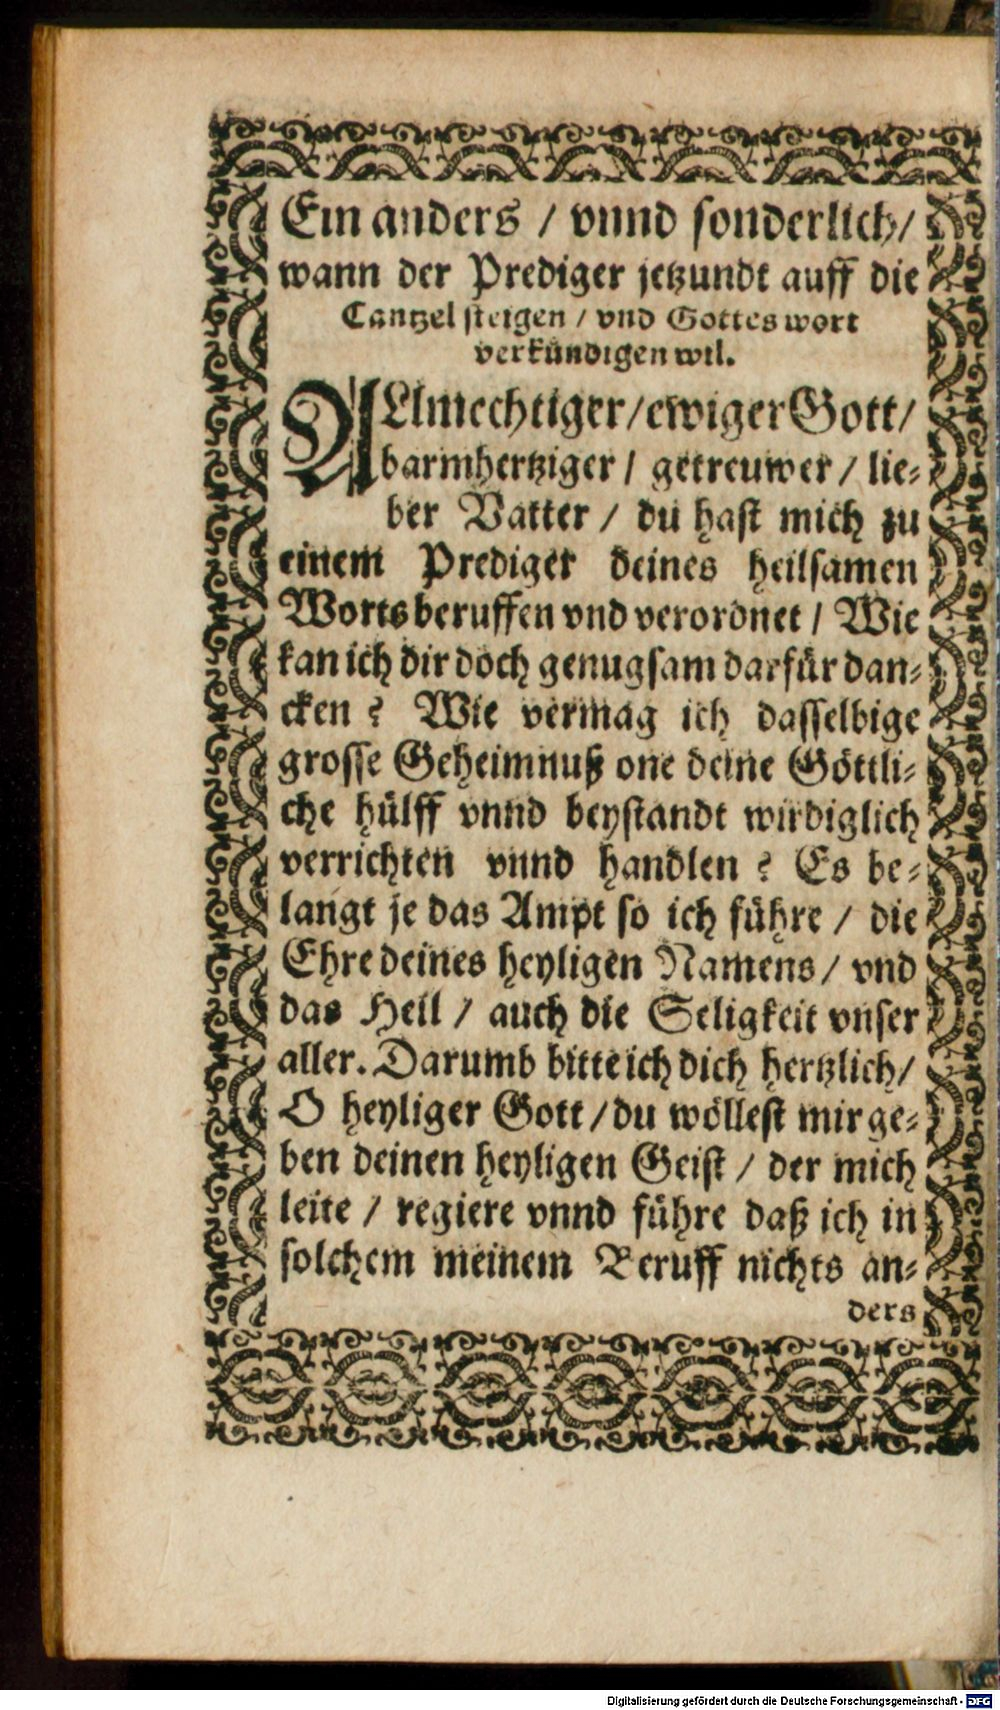 Ein anders / vnnd sonderlich /
wann der Prediger jetzundt auff die
Cantzel steigen / vnd Gottes wort
verkündigen wil.
ALlmechtiger / ewiger Gott /
barmhertziger / getreuwer / lie-
ber Vatter / du hast mich zu
einem Prediger deines heilsamen
Worts beruffen vnd verordnet / Wie
kan ich dir doch genugsam darfür dan-
cken ? Wie vermag ich dasselbige
grosse Geheimnuß one deine Göttli-
che hülff vnnd beystandt wirdiglich
verrichten vnnd handlen ? Es be-
langt je das Ampt so ich führe / die
Ehre deines heyligen Namens / vnd
das Heil / auch die Seligkeit vnser
aller. Darumb bitte ich dich hertzlich /
O heyliger Gott / du wöllest mir ge-
ben deinen heyligen Geist / der mich
leite / regiere vnnd führe daß ich in
solchem meinem Beruff nichts an-
ders
Digitalisierung gefördert durch die Deutsche Forschungsgemeinschaft - DFG